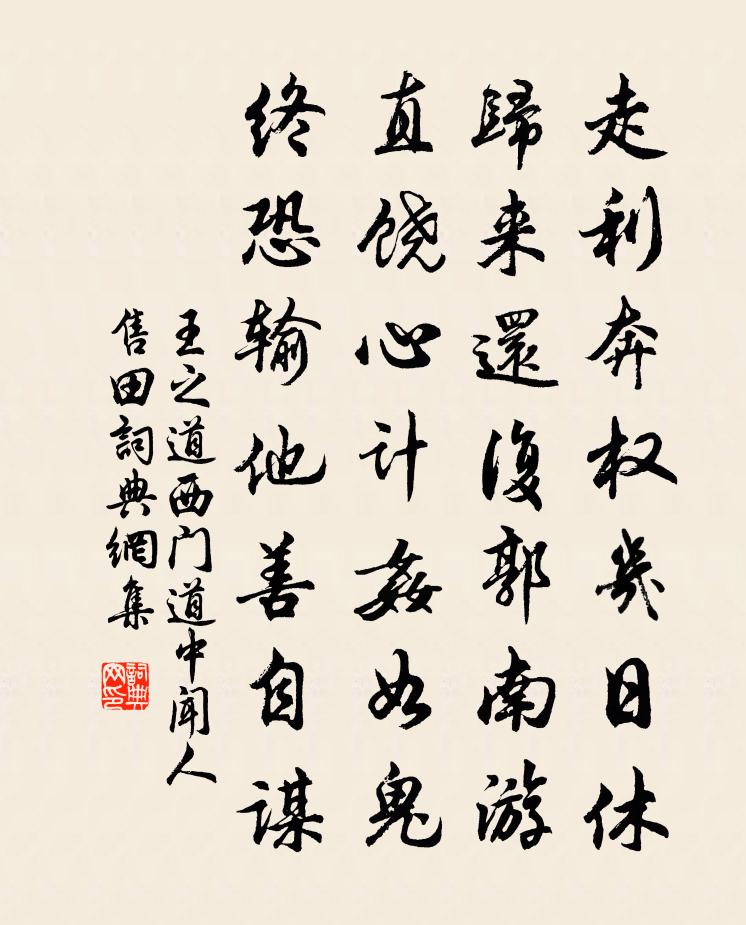 走利奔权幾日休
歸来還復郭南游
直饶心计姦如鬼
终恐输他善自谋
王之道西门道中闻人
售田詞典網集
詞典網印